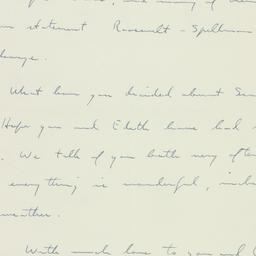 statement Roosevelt - Spellman
What have you decided about
Hope you and Edith have had
. We talk of you both very often
everything is wonderful,
weather.
With much love to you and